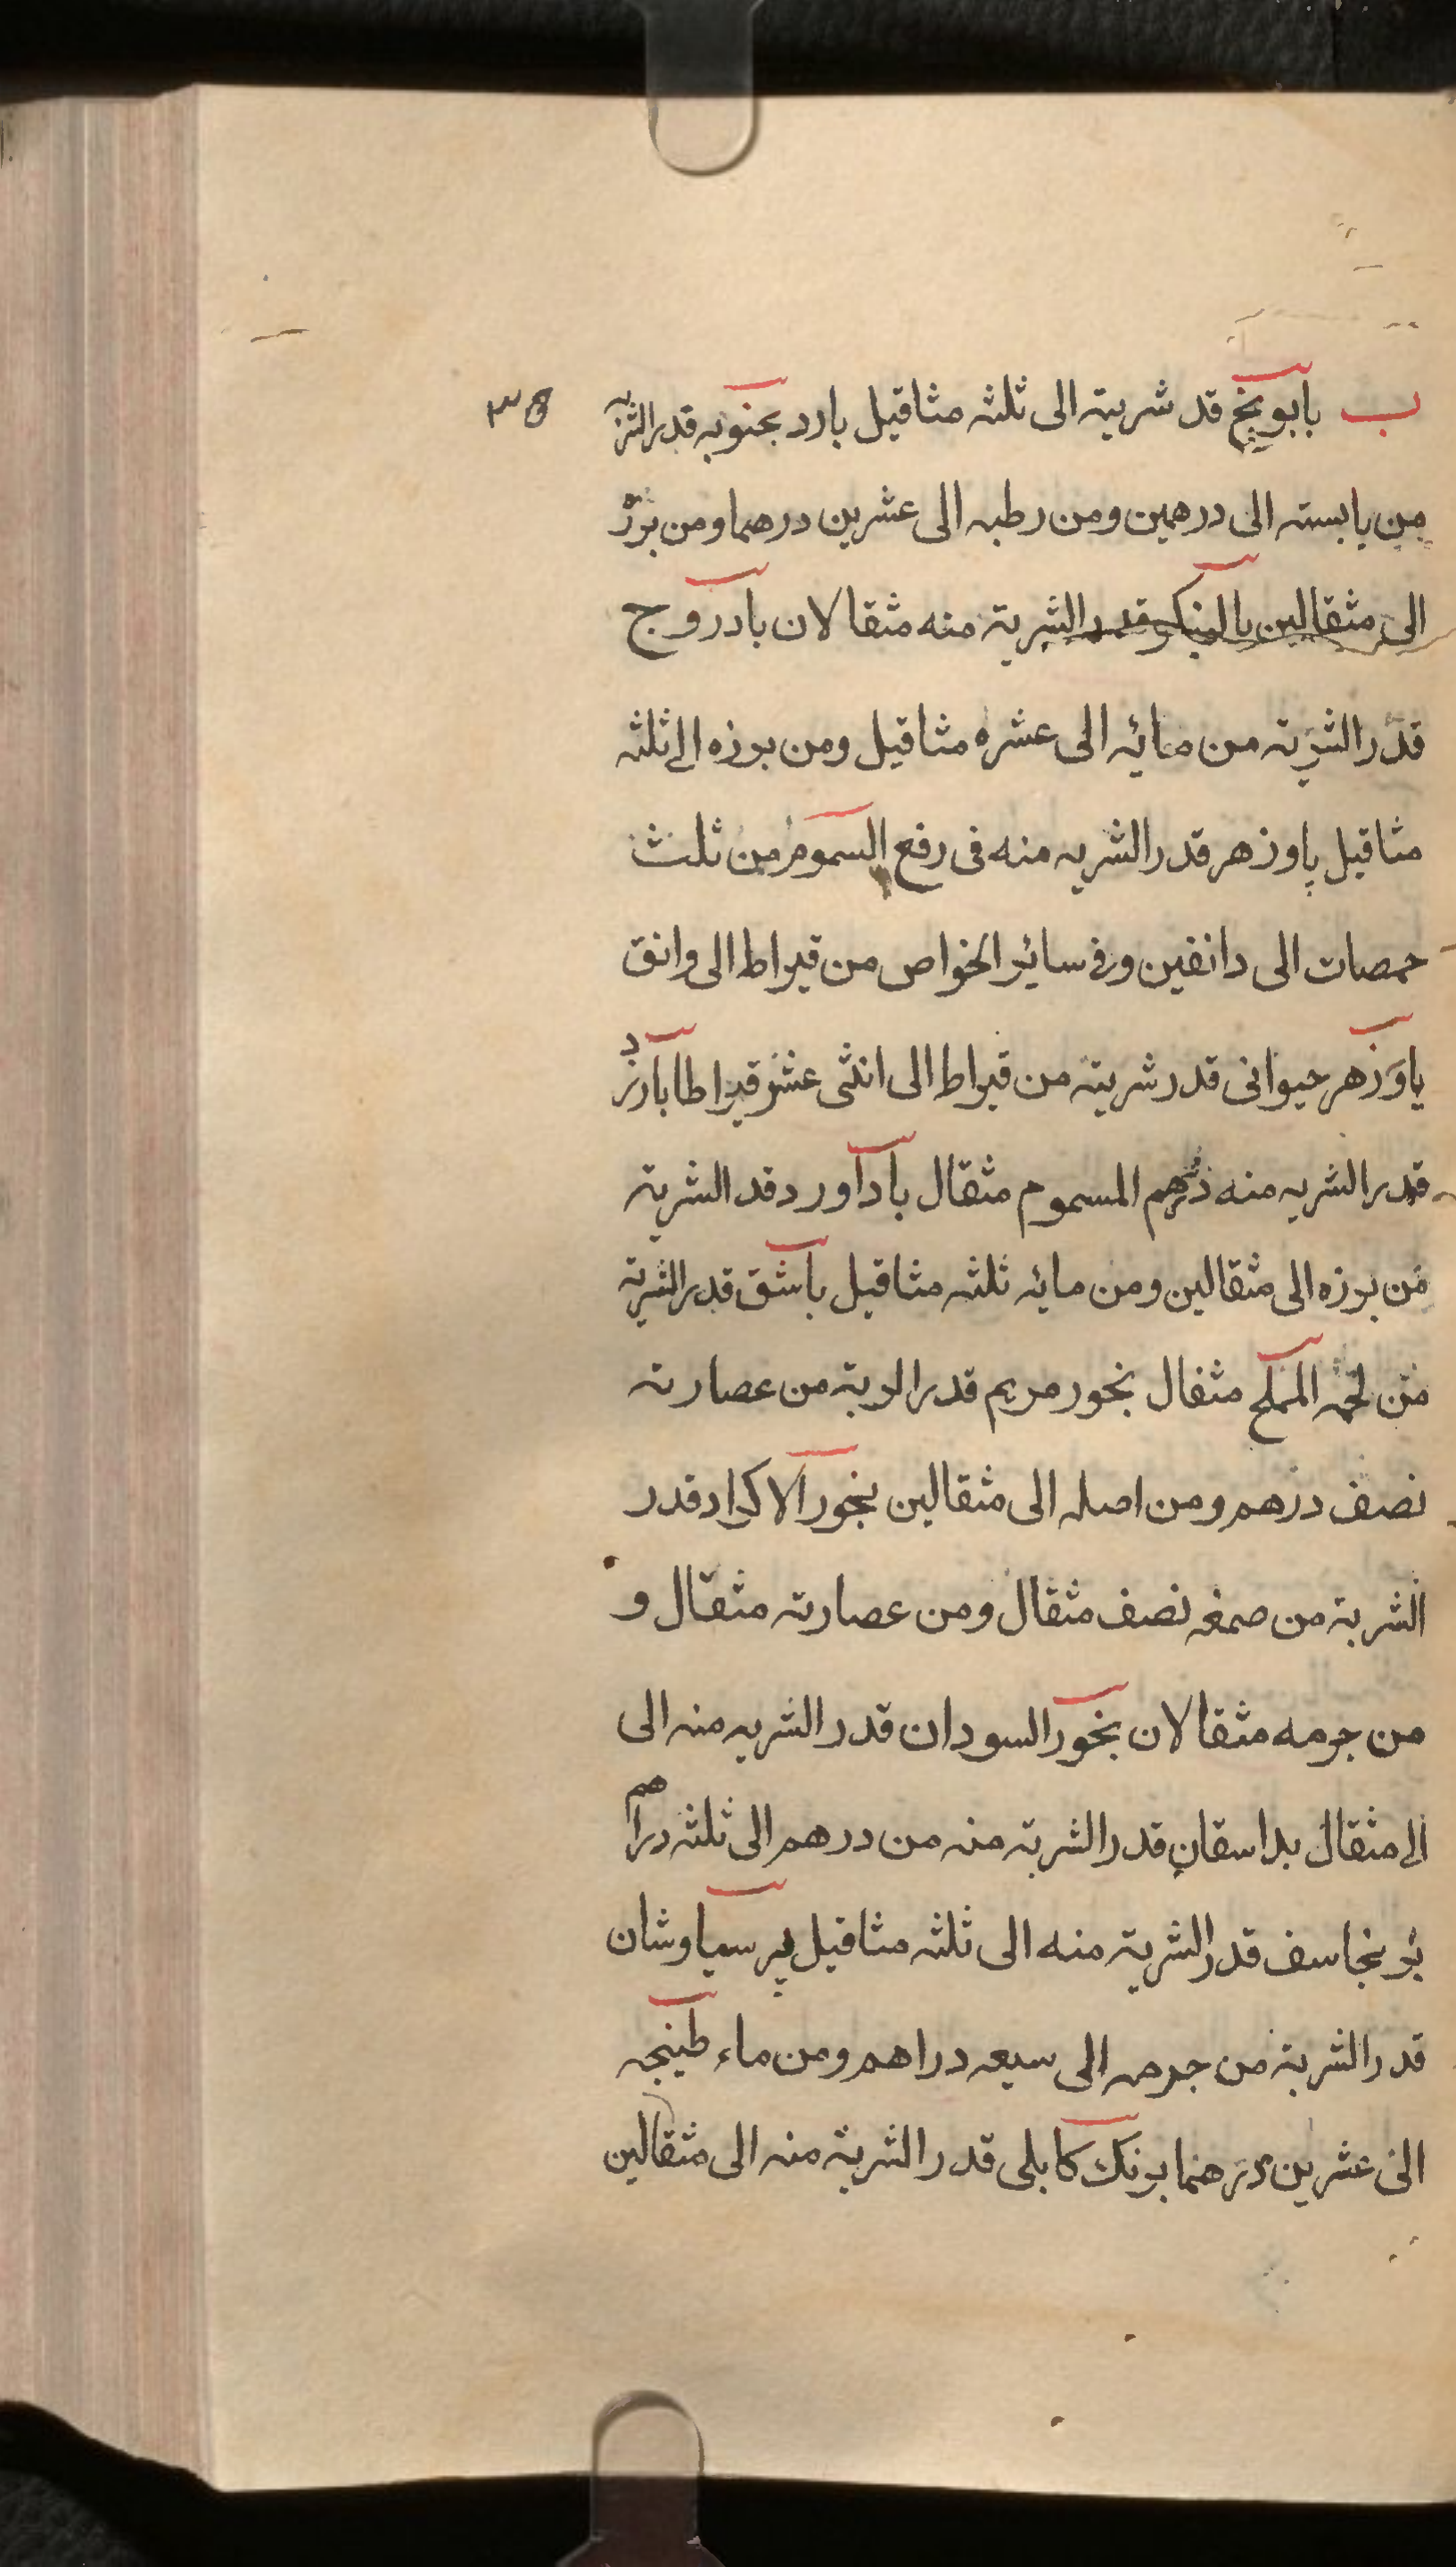 ب بابونج قد شربته الى ثلثه مثاقيل بارد بجنوبه قدر الشربه ٣٥
من يابسته الى درهمين ومن رطبه الى عشرين درهما ومن بزر
الى مثقالين بالمنكو قدر الشربة منه مثقالان بادروج
قدر الشربة من مائه الى عشره مثاقيل ومن بزره الى ثلثه
مثاقيل پاوزهر قدر الشربه منه فى رفع السموم من ثلث
حمصات الى دانقين وفى سائر الخواص من قيراط الى وانق
ياوزهر حيوانى قدر شربته من قيراط الى اثنى عشر قيراطا بارزد
قدر الشربه منه درهم المسموم مثقال بادآورد قد الشربة
من بزره الى مثقالين ومن مائه ثلثه مثاقيل باشق قدر الشربة
من لحمه المملح مثقال بخور مريم قدر الربة من عصارته
نصف درهم ومن اصله الى مثقالين بخور الاكراد قدر
الشربة من صمغه نصف مثقال ومن عصارته مثقال و
من جرمه مثقالان بخور السودان قدر الشربه منه الى
الى مثقال بداسقان قدر الشربة منه من درهم الى ثلثه دراهم
برنجاسف قدر الشربة منه الى ثلثه مثاقيل پرسياوشان
قدر الشربة من جرمه الى سبعه دراهم ومن ماء طبيخه
الى عشرين درهما برنك كابلى قدر الشربة منه الى مثقالين